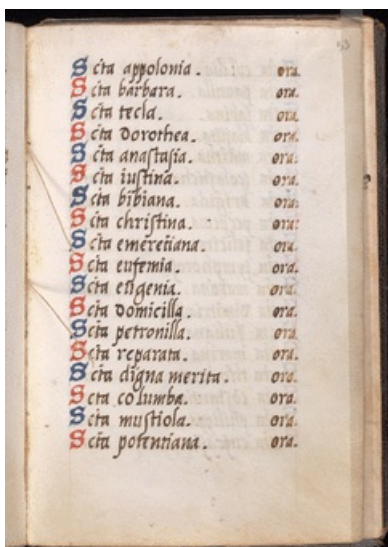 53
Scta appolonia. ora.
Scta barbara. ora.
Scta tecla. ora.
Scta dorothea. ora.
Scta anastasia. ora.
Scta iustina. ora.
Scta bibiana. ora.
Scta christina. ora.
Scta emerētiana. ora.
Scta eufemia. ora.
Scta efigenia. ora.
Scta domicilla. ora.
Scta petronilla. ora.
Scta reparata. ora.
Scta digna merita. ora.
Scta columba. ora.
Scta mustiola. ora.
Scta potentiana. ora.